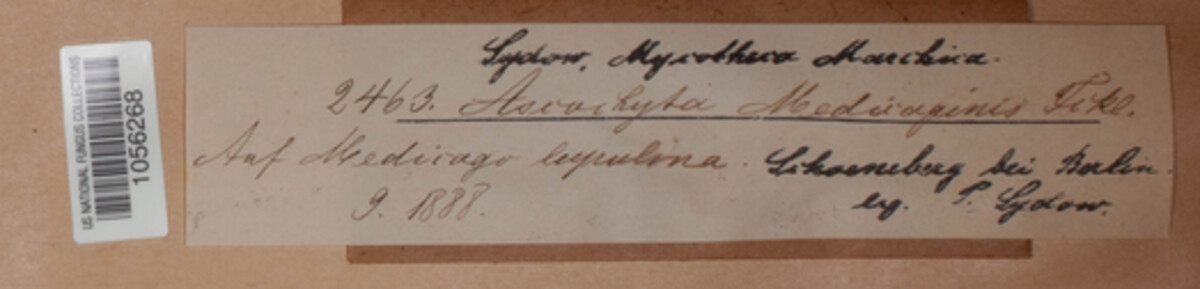 US NATIONAL FUNGUS COLLECTIONS
1056268
Sydow, Mycotheca Marchica.
2463. Ascochyta Medicaginis Fckl.
Auf Medicago lupulina. Schoeneberg bei Berlin.
9. 1888. leg. P. Sydow.